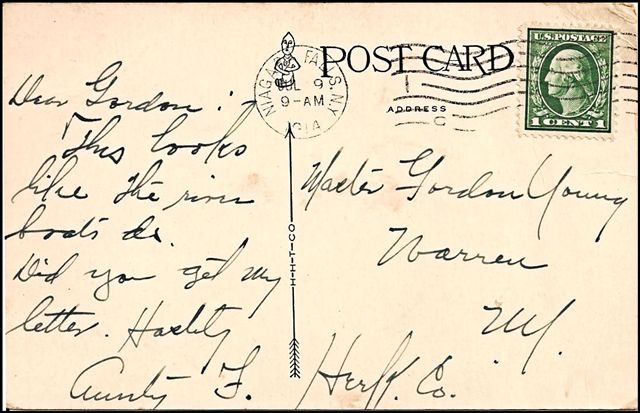 POST CARD
ADDRESS
NIAGARA FALLS, N.Y.
JUL 9
9-AM
1914
U.S. POSTAGE
1 CENT 1
Dear Gordon :-
This looks
like the river
boats do.
Did you get my
letter. Hastily
Aunty F.
H-H-T-CO
Master Gordon Young
Warren
N.Y.
Herk. Co.